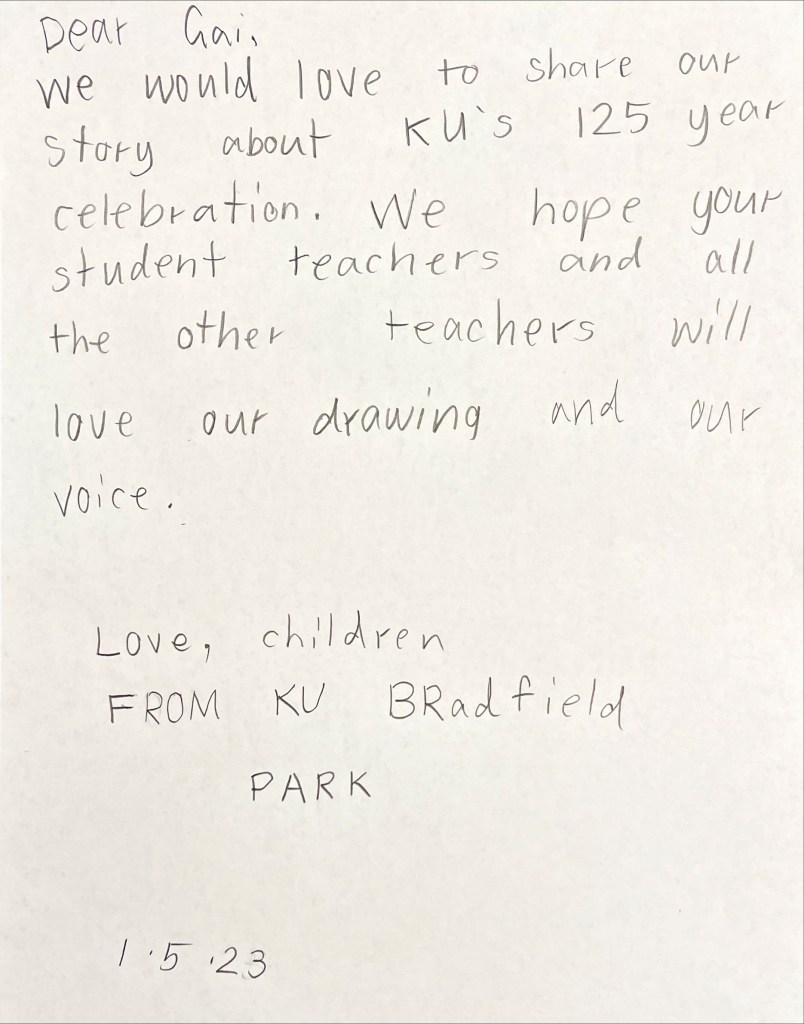 Dear Gai,
we would love to share our
story about KU's 125 year
celebration. We hope your
student teachers and all
the other teachers will
love our drawing and our
voice.
Love, children
FROM KU BRadfield
PARK
1.5.23